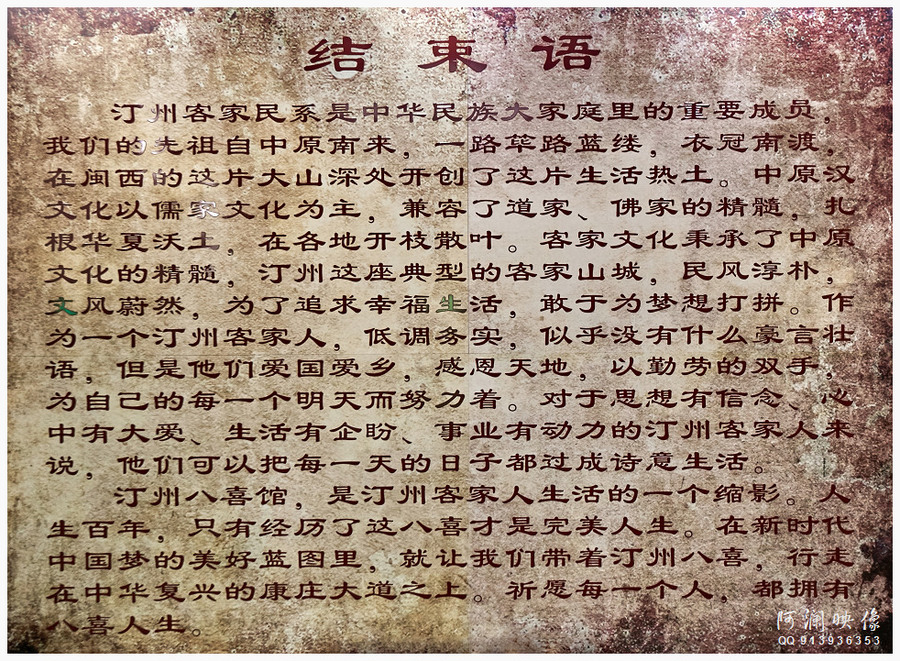 结束语
汀州客家民系是中华民族大家庭里的重要成员，
我们的先祖自中原南来，一路筚路蓝缕，衣冠南渡，
在闽西的这片大山深处开创了这片生活热土。中原汉
文化以儒家文化为主，兼容了道家、佛家的精髓，扎
根华夏沃土，在各地开枝散叶。客家文化秉承了中原
文化的精髓，汀州这座典型的客家山城，民风淳朴，
文风蔚然，为了追求幸福生活，敢于为梦想打拼。作
为一个汀州客家人，低调务实，似乎没有什么豪言壮
语，但是他们爱国爱乡，感恩天地，以勤劳的双手，
为自己的每一个明天而努力着。对于思想有信念、心
中有大爱、生活有企盼、事业有动力的汀州客家人来
说，他们可以把每一天的日子都过成诗意生活。
汀州八喜馆，是汀州客家人生活的一个缩影。人
生百年，只有经历了这八喜才是完美人生。在新时代
中国梦的美好蓝图里，就让我们带着汀州八喜，行走
在中华复兴的康庄大道之上。祈愿每一个人，都拥有
八喜人生。
阿澜映像
QQ 913936353